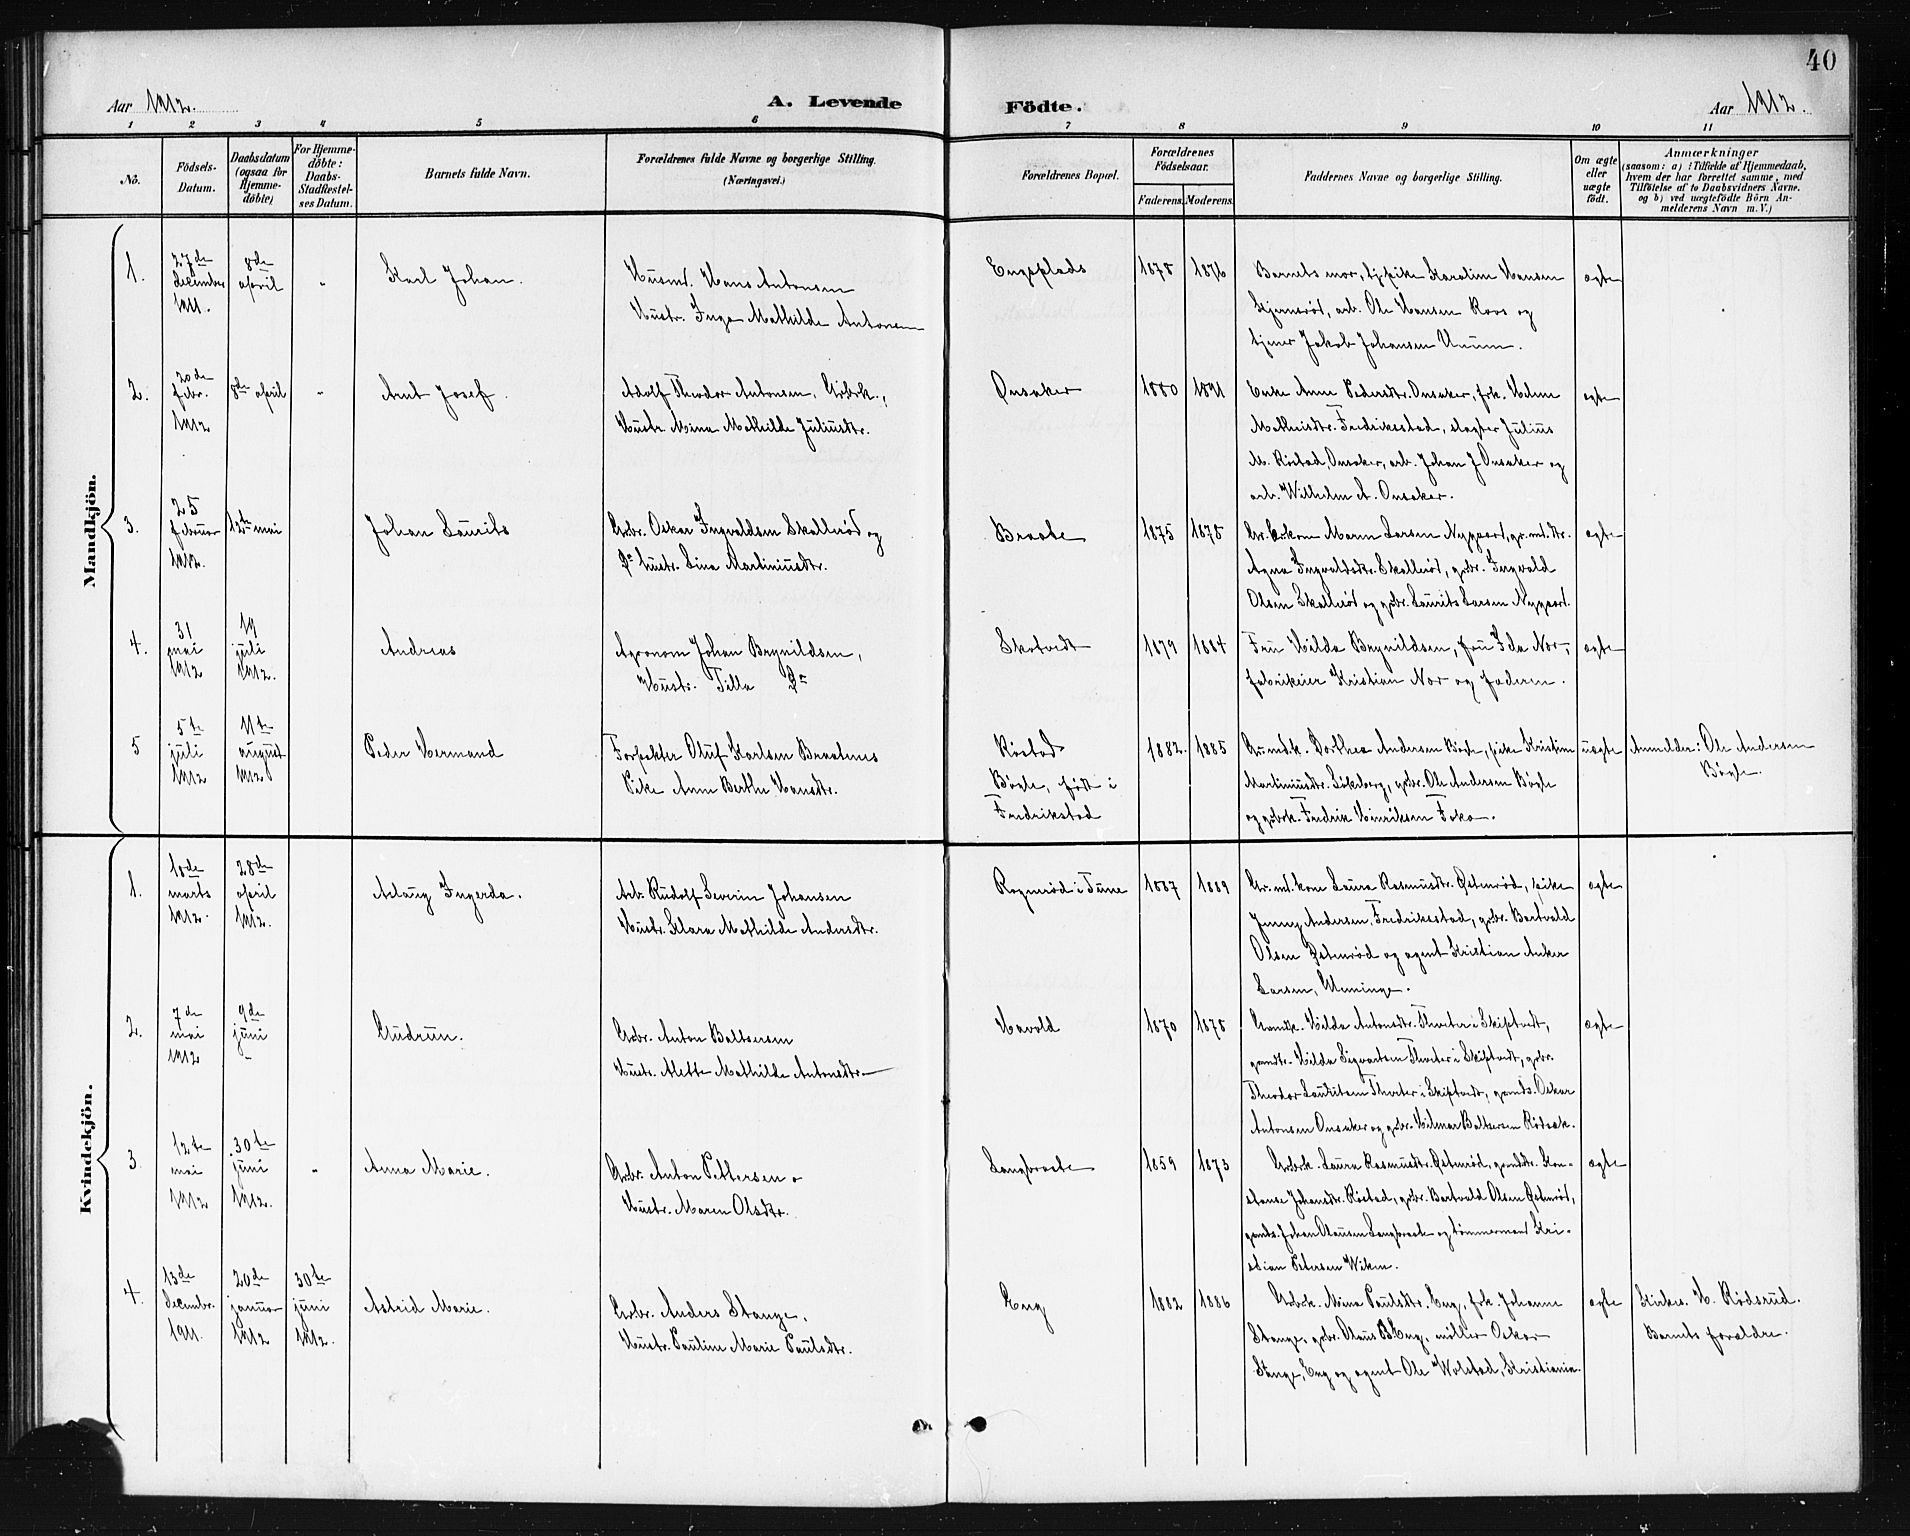 40
Aar 1912.
A. Levende Födte.
Aar 1912.
1 2 3 4 5 6 7 8 9 10 11
No.
Födsels-
Datum.
Daabsdatum
(ogsaa for
Hjemme-
döbte)
For Hjemme-
döbte:
Daabs-
Stadfæstel-
ses Datum.
Barnets fulde Navn.
Forældrenes fulde Navne og borgerlige Stilling.
(Næringsvei.)
Forældrenes Bopæl.
Forældrenes
Födselsaar.
Faderens. Moderens.
Faddernes Navne og borgerlige Stilling.
Om ægte
eller
uægte
födt.
Anmærkninger
(saasom: a) i Tilfælde af Hjemmedaab,
hvem der har forrettet samme, med
Tilföielse af to Daabsvidners Navne.
og b) ved uægtefödte Börn An-
melderens Navn m. V.)
Mandkjön.
1.
27de
december
1911.
8de
april
"
Karl Johan.
Husmd. Hans Antonsen
Hustr. Inga Mathilde Antonsen
Engeplads
1878 1876
Barnets mor, tj. pike Karoline Hansen
Stjernerød, arb. Ole Hansen Roos og
tjener Jakob Johansen Unum.
ægte
2.
20de
febr.
1912
8de april
"
Arnt Josef.
Adolf Theodor Antonsen, Grbrk.,
Hustr. Mina Mathilde Juliusdtr.
Onsaker
1880 1891
Enke Anne Pedersdtr. Onsaker, frk. Helene
Mathisdtr. Fredriksstad, slagter Julius
M. Röstad, Onsaker, arb. Johan J. Onsaker og
arb. Wilhelm A. Onsaker.
ægte
3.
25
februar
1912.
12te mai
Johan Laurits
Grbr. Oskar Ingvaldsen Skallerød og
Do hustr. Lina Martiniusdtr.
Braate
1875 1878
Gr.br.kone Maren Larsen Nygaard, gr.md.dtr.
Agna Ingvaldsdtr. Skallerød, grbr. Ingvald
Olsen Skallerød og grbr. Laurits Larsen Nygaard.
ægte
4.
31
mai
1912
19
juli
1912.
Andreas
Agronom Johan Brynildsen,
Hustr. Tilla Do
Skotvedt
1879 1884
Fru Hilda Brynildsen, fru Ida Nor-,
fabrikeier Kristian Nor og faderen.
ægte
5
5te
juli
1912
11te
august
1912
Peder Hermand
Forpakter Oluf Karlsen Braatenes
Pike Anna Berthe Hansdtr.
Röstad
Bögle, født i
Fredrikstad
1882. 1885
Gr.mdsk. Dorthea Andersen Bögle, pike Kristine
Martiniusdtr. Løkeberg, grbr. Ole Andersen Bögle
og grbrk. Fredrik Hinriksen Foko.
uægte
Anmelder: Ole Andersen
Bögle.
Kvindekjön.
1.
10de
marts
1912.
28de
april
1912.
Aslaug Ingerda.
Arb. Rudolf Severin Johansen
Hustr. Klara Mathilde Andersdtr.
Rognerød i Tune
1887 1889
Gr.md.kone Laura Rasmusdtr. Østenrød, pike
Jenny Andersen, Fredriksstad, grbr. Bartvald
Olsen Østenrød og agent Kristian Anker
Larsen, Ueninge.
ægte
2.
7de
mai
1912
9de
juni
"
Gudrun.
Grbr. Anton Baltsersen
Hustr. Alette Mathilde Antonsdtr.
Havold
1870 1878
Grmdk. Hilda Antonsdtr. Thveter i Skiptvedt,
grmdtr. Hilda Sigvartsen Thveter i Skiptvedt, grbr.
Theodor Lauritsen Thveter i Skiptvedt, grmds. Oskar
Antonsen Onsaker og grbr. Hilmar Baltsersen Rödsek.
ægte
3.
12te
mai
1912
30te
juni
1912.
"
Anna Marie.
Grbr. Anton Pettersen o
Hustr. Maren Olsdtr.
Langbraate
1859 1873
Grbrk. Laura Rasmusdtr. Østenrød, grmddtr. Kon-
stanse Johansdtr. Röstad, grbr. Bartvald Olsen Østenrød,
grmds. Johan Olausen Langbraate og tømmermand Kri-
stian Petersen Wiken.
ægte
4.
13de
decembr.
1911.
20de
januar
1912
30te
juni
1912.
Astrid Marie.
Grbr. Anders Stange,
Hustr. Pauline Marie Paulsdtr.
Eng
1882 1886
Grbrk. Mina Paulsdtr. Eng, frk. Johanne
Stange, grbr. Olaus B Eng, møller Oskar
Stange, Eng og agent Ole Wolstad, Kristiania.
ægte
Kirkes. H. Rödsrud.
Barnets forældre.